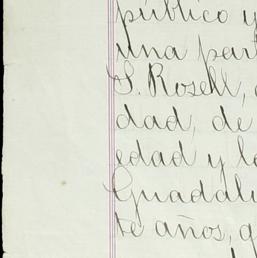 público y
una par
S. Rosell,
dad, de
edad y l
Guadalu
te años, q